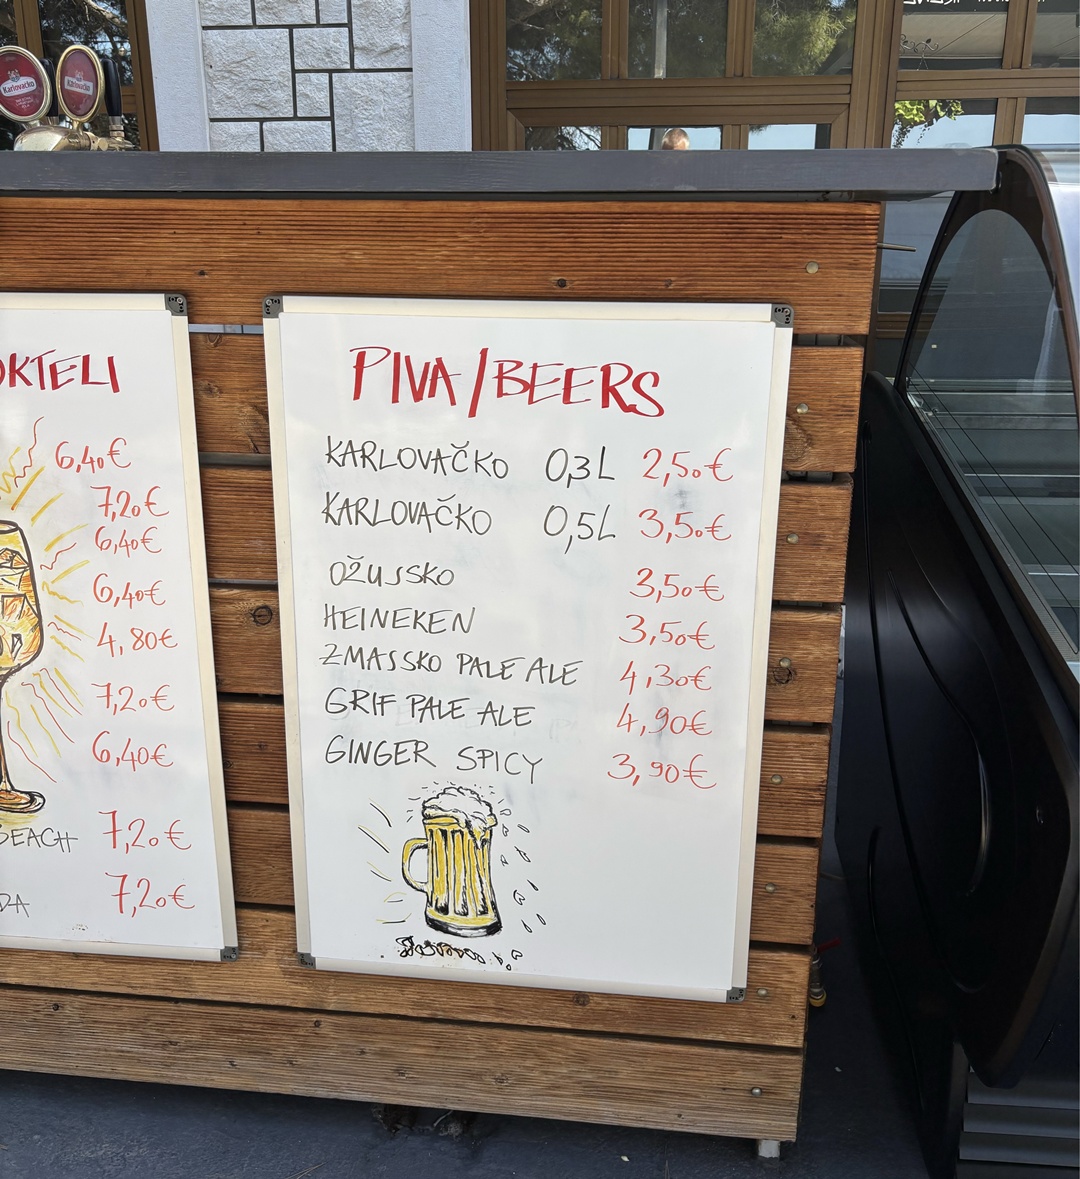 Karlovačko
Karlovačko
OKTELI
6,40€
7,20€
6,40€
6,40€
4,80€
7,20€
6,40€
BEACH 7,20€
DA 7,20€
PIVA/BEERS
KARLOVAČKO 0,3L 2,50€
KARLOVAČKO 0,5L 3,50€
OŽUJSKO 3,50€
HEINEKEN 3,50€
ZMAJSKO PALE ALE 4,30€
GRIF PALE ALE 4,90€
GINGER SPICY 3,90€